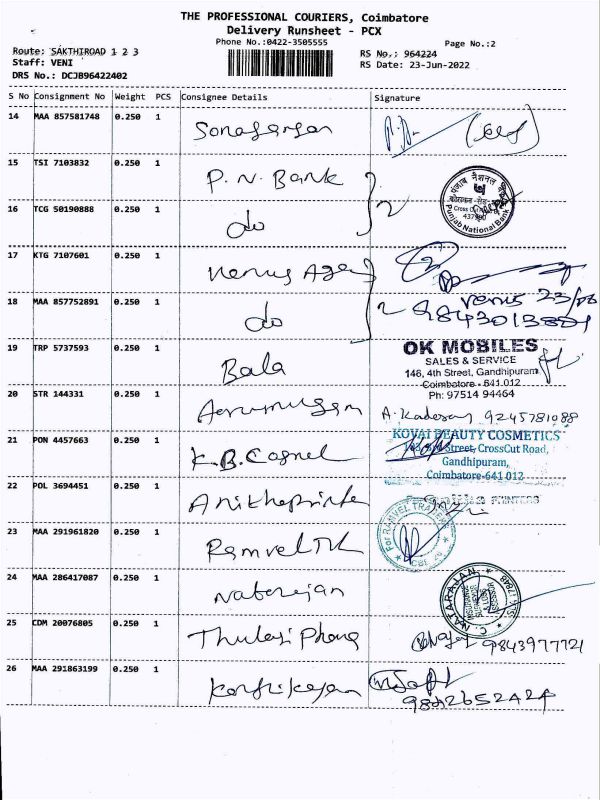 THE PROFESSIONAL COURIERS, Coimbatore
Delivery Runsheet - PCX
Phone No.:0422-3505555
Page No.:2
Route: SAKTHIROAD 1 2 3
RS No.: 964224
Staff: VENI
RS Date: 23-Jun-2022
DRS No.: DCJB96422402
S No Consignment No Weight PCS Consignee Details Signature
14 MAA 857581748 0.250 1
15 TSI 7103832 0.250 1 P.N. Bank
पंजाब नैशनल
Punjab National Bank
16 TCG 50190888 0.250 1 do
17 KTG 7107601 0.250 1
venus 23/06
18 MAA 857752891 0.250 1 do
19 TRP 5737593 0.250 1 Bala
OK MOBILES
SALES & SERVICE
146, 4th Street, Gandhipuram
Coimbatore - 641 012
Ph: 97514 94464
20 STR 144331 0.250 1 Aarumugam 9245781088
21 PON 4457663 0.250 1 K.B.
KOVAI BEAUTY COSMETICS
Street, CrossCut Road,
Gandhipuram,
Coimbatore-641 012
22 POL 3694451 0.250 1
PRINTERS
23 MAA 291961820 0.250 1 Ramvel
For RAMVEL TRADERS
CBE
24 MAA 286417087 0.250 1 Natarajan
C. NATARAJAN
INSURANCE
SURVEYOR
& LOSS
ASSESSOR
25 CDM 20076805 0.250 1 9843977721
26 MAA 291863199 0.250 1 Karthikeyan
9842652424